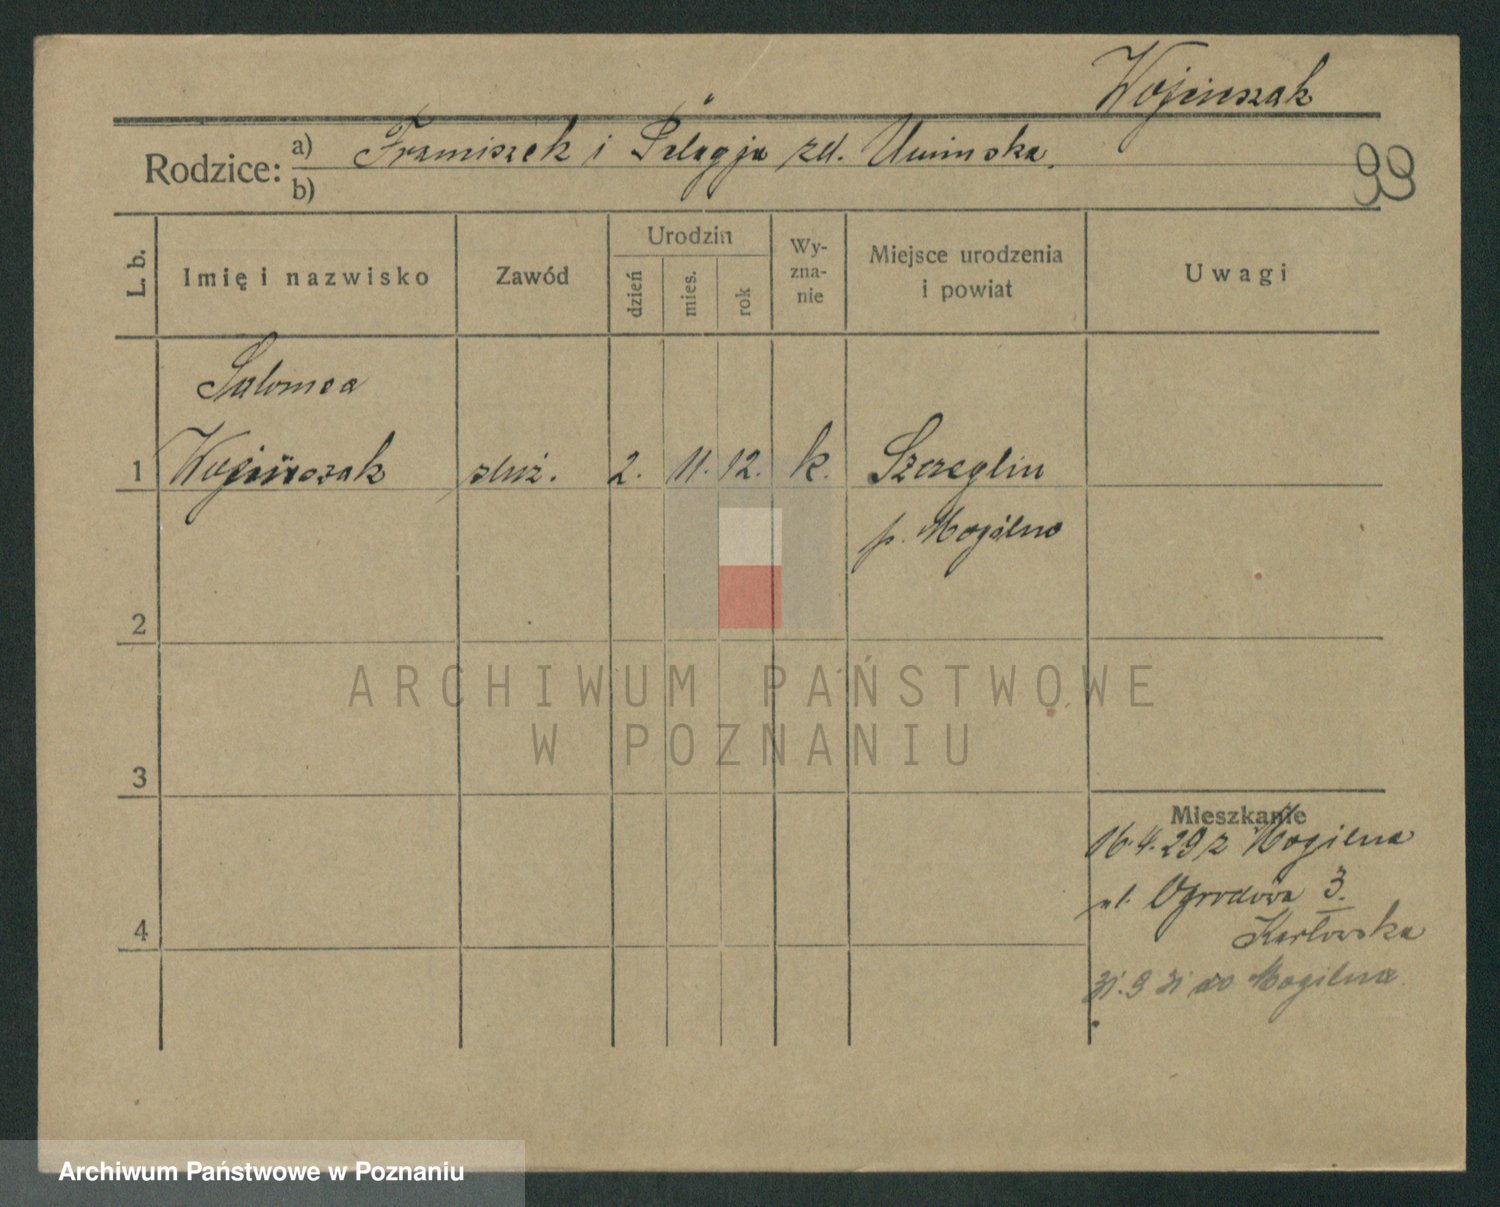 Wojciuszak
Rodzice: a) Franciszek i Pelagja zd. Umińska.
b)
99
L. b.
Imię i nazwisko
Zawód
Urodzin
dzień
mies.
rok
Wy-
zna-
nie
Miejsce urodzenia
i powiat
Uwagi
Salomea
1 Wojciuszak służ. 2. 11. 12. k. Szczeglin
p. Mogilno
2
ARCHIWUM PAŃSTWOWE
W POZNANIU
3
Mieszkanie
16.4.29 z Mogilna
ul. Ogrodowa 3.
4
Karłowska
31.9 31 do Mogilna
Archiwum Państwowe w Poznaniu